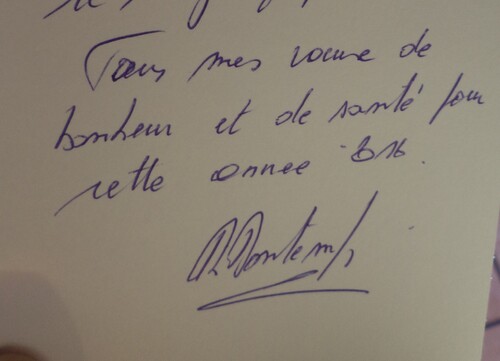 Tous mes voeux de
bonheur et de santé pour
cette année 2016.